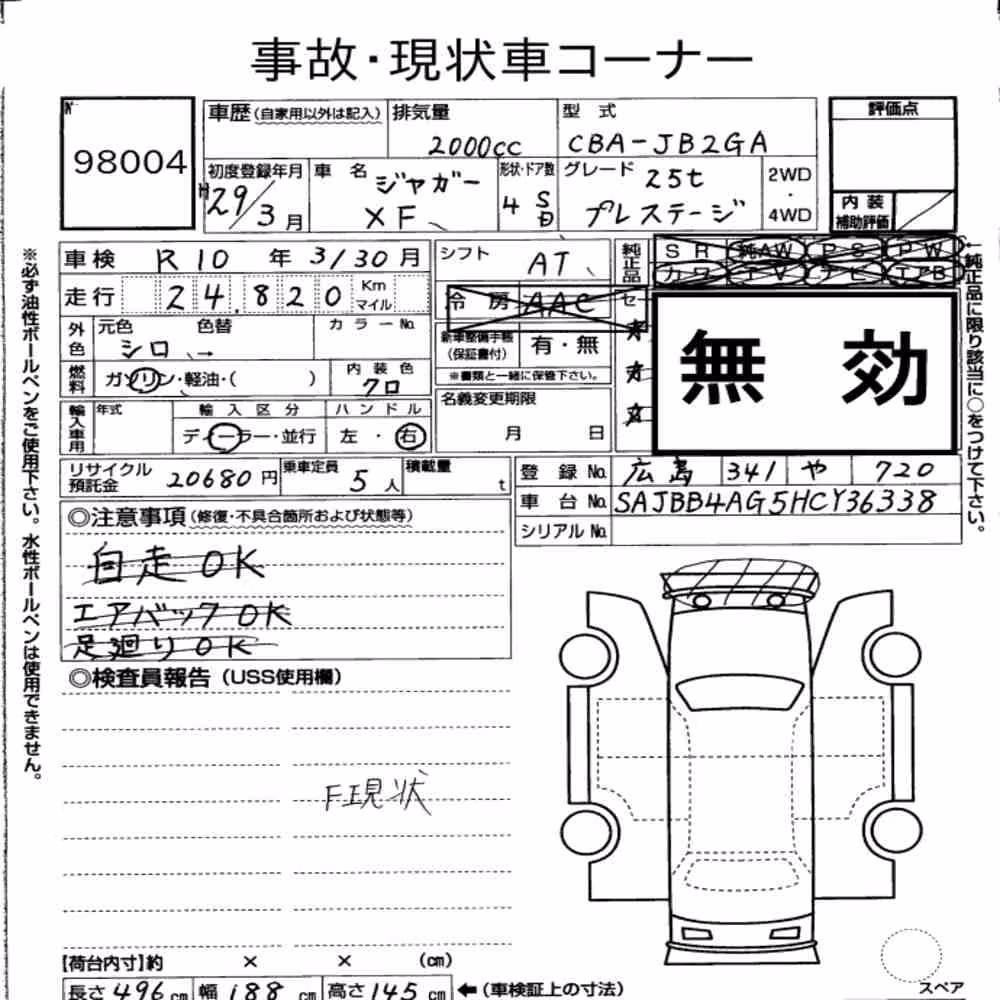 事故・現状車コーナー
№ 98004
車歴(自家用以外は記入)
排気量 2000cc
型式 CBA-JB2GA
評価点
初度登録年月 H29/3月
車名 ジャガー XF
形状・ドア数 4 SD
グレード 25t プレステージ
2WD・4WD
内装補助評価
車検 R10年 3/30月
シフト AT
純正品 SR 純AW PS PW
カワ TV ナビ エアB
走行 24,820 Km マイル
冷房 AAC
セ
無効
外色 元色 シロ 色替 → カラーNo.
新車整備手帳(保証書付) 有・無
※書類と一緒に保管下さい。
燃料 ガソリン・軽油・( )
内装色 クロ
名義変更期限 月 日
輸入車用 年式 輸入区分 ディーラー・並行
ハンドル 左・右
リサイクル預託金 20680円
乗車定員 5人
積載量 t
登録No. 広島 341 や 720
車台No. SAJBB4AG5HCY36338
シリアルNo.
◎注意事項(修復・不具合箇所および状態等)
自走OK
エアバックOK
足廻りOK
◎検査員報告(USS使用欄)
F現状
【荷台内寸】約 × × (cm)
長さ496cm 幅188cm 高さ145cm ←(車検証上の寸法)
スペア
※必ず油性ボールペンをご使用下さい。水性ボールペンは使用できません。
←純正品に限り該当に○をつけて下さい。